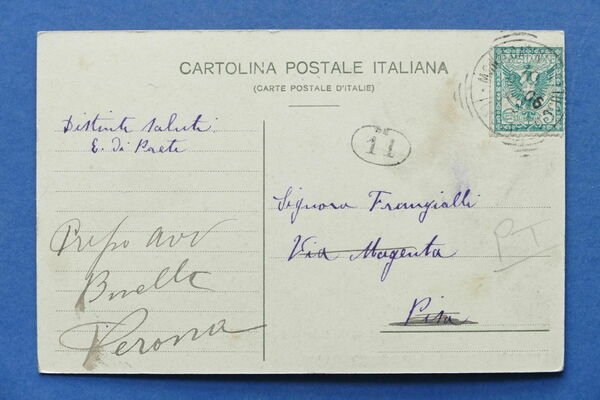 CARTOLINA POSTALE ITALIANA
(CARTE POSTALE D'ITALIE)
Distinti saluti
E. Di Prete
11
Signora Frangialli
Via Magenta
Pisa
Presso Avv
Verona
PT